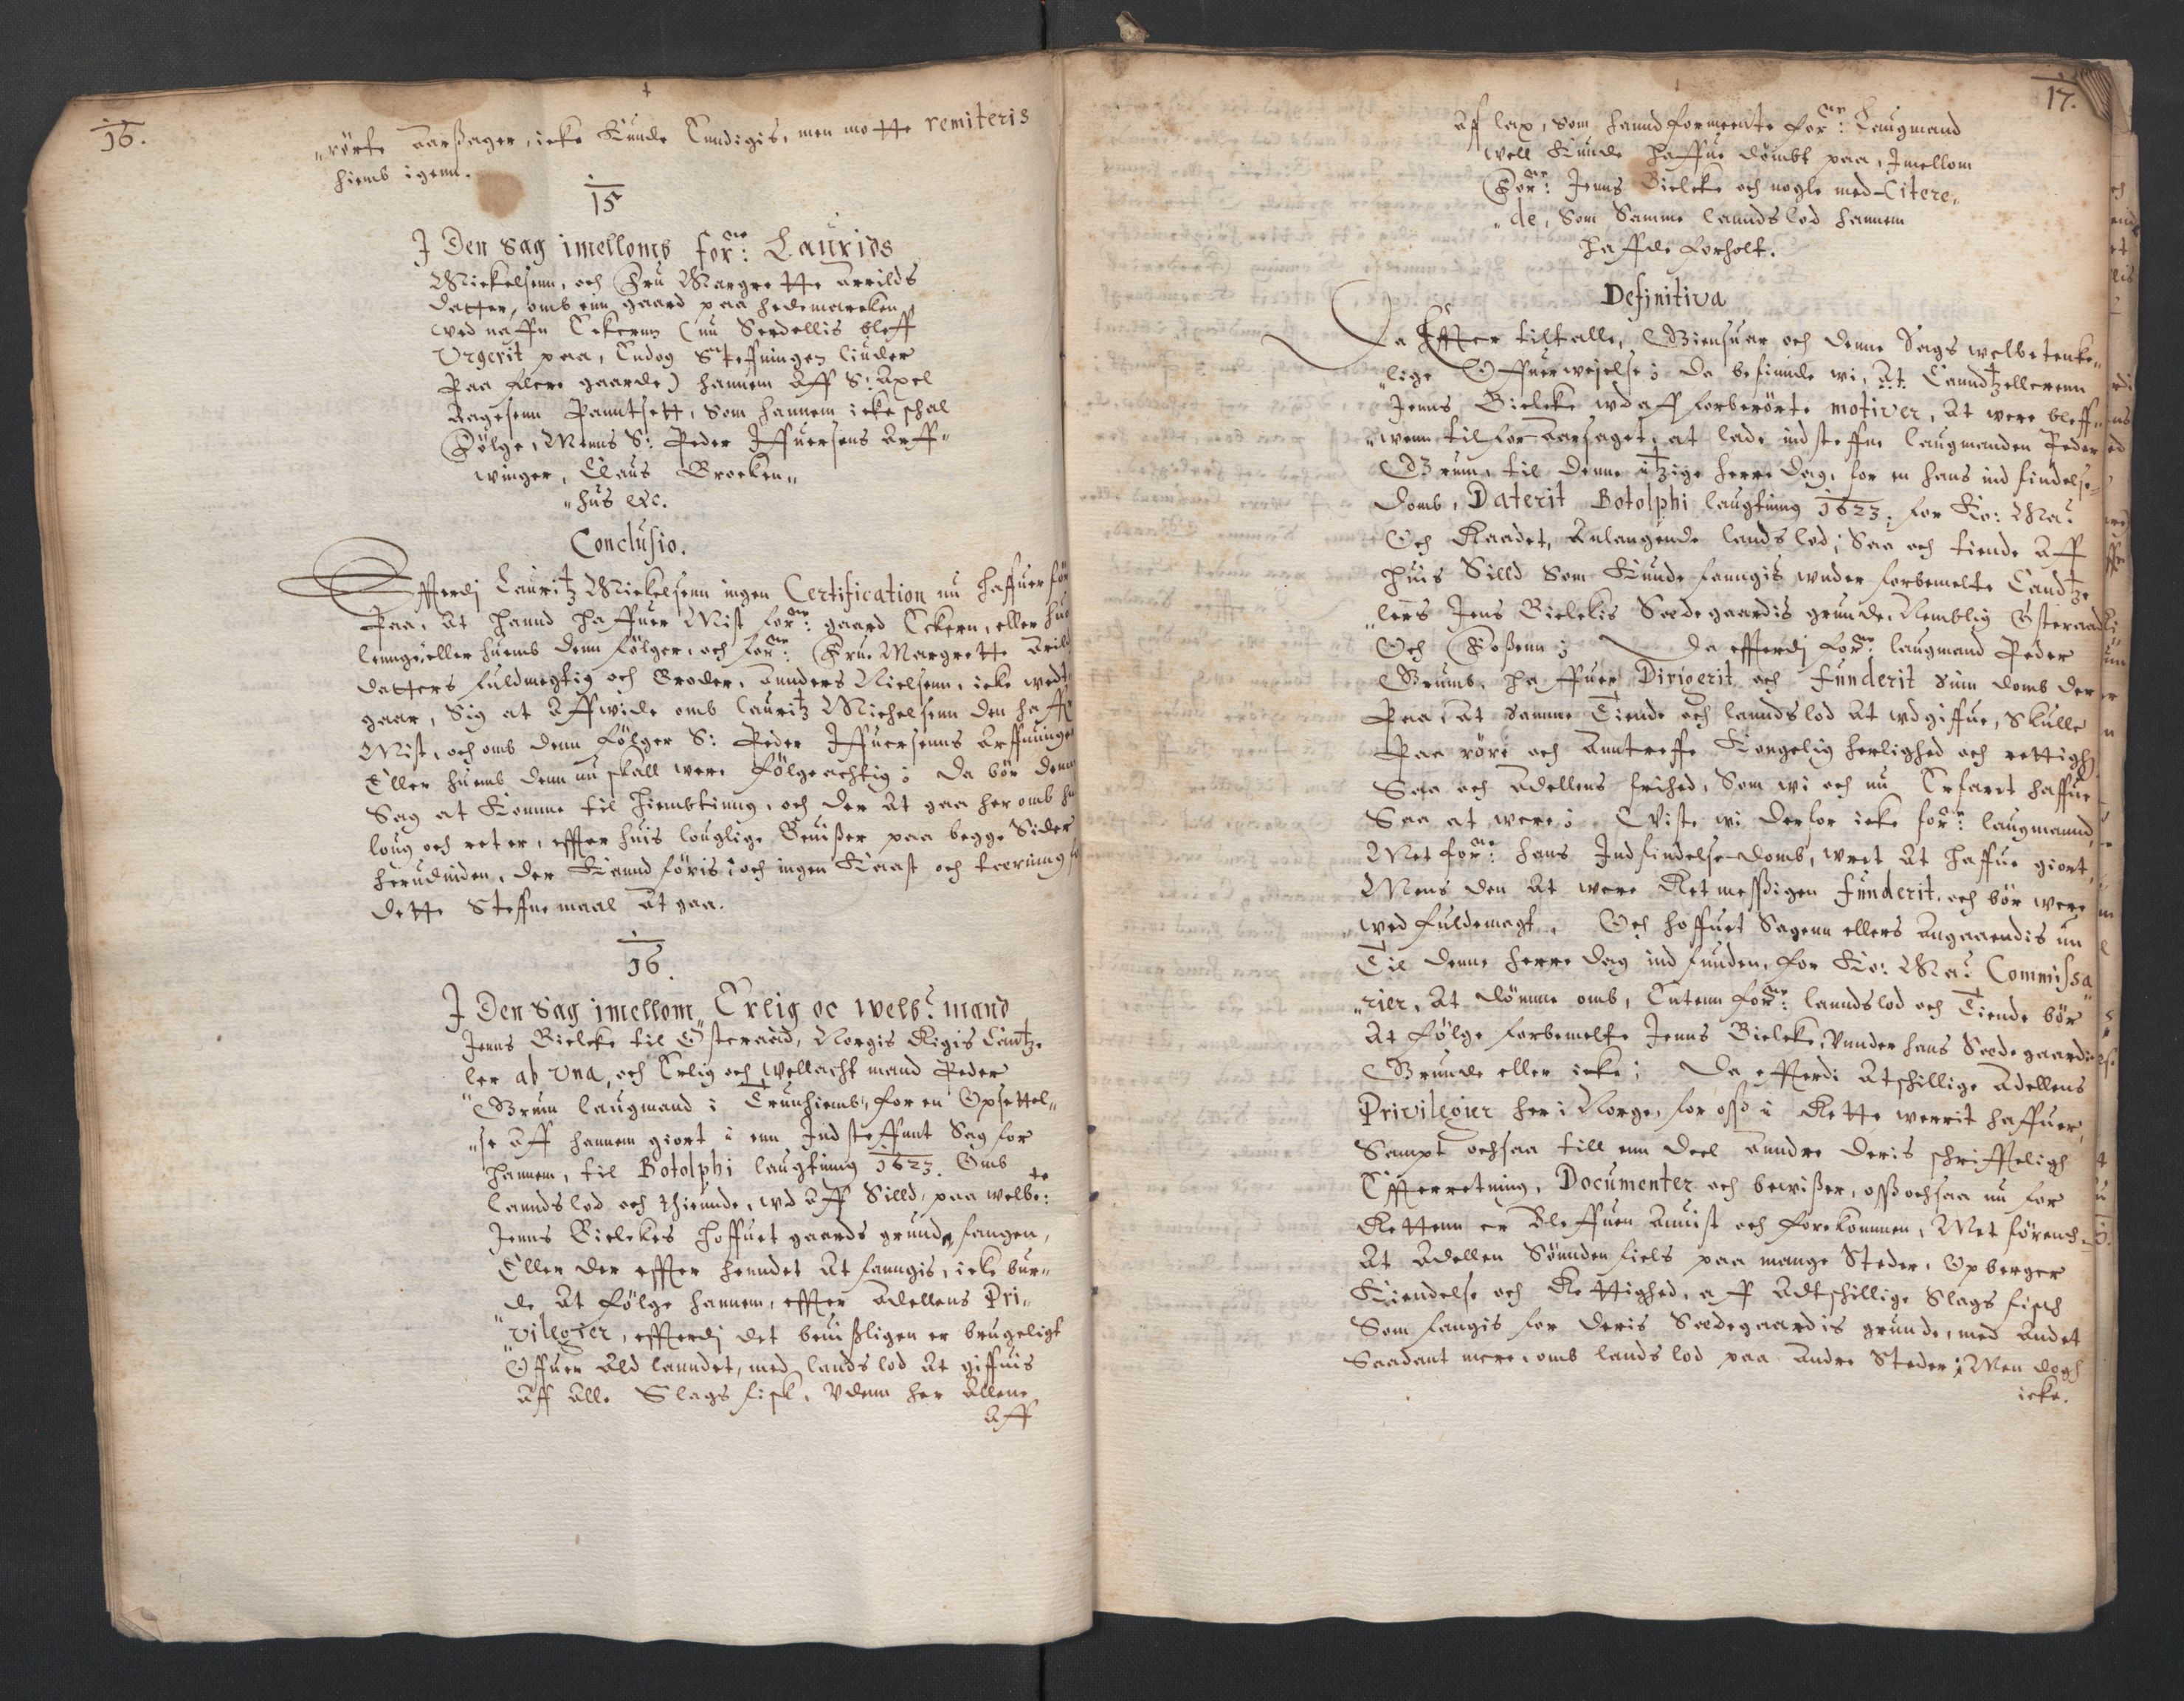 16.
"rörte Aarsager, icke kunde Endigis, men motte remiteris
hiemb igenn.
15
J Den Sag imelloms for:ne Laurids
Mickelsenn, och Fru Margrette Arrilds
datter, omb enn gaard paa hedemarcken
ved naffn Eckernn (nu Serdellis bleff
Urgerit paa, Endog Steffningen liuder
Paa flere gaarde) hannem Aff S: Axel
Aagesenn Panntsett, Som hannem icke schal
Følge, Menns S: Peder Iffuersens Arff-
winger, Claus Brocken,,
"hus etc.
Conclusio.
Efferdj Lauritz Mickelsenn ingen Certification nu haffuer før
Paa, At hannd haffuer Mist for:ne gaard Eckern, eller hu
lennge, eller huemb denn følger, och for:ne Frue Margrette Arild
datters fuldmegtig och Broder, Annders Nielsenn, icke wedt
gaar, Sig at Affwide omb Lauritz Michelsenn den haff
Mist, och omb denn følger S: Peder Iffuersenns Arffuinge
Eller huemb denn nu skall were følgeachtig; Da bör denn
Sag at Komme til hiembtinng, och der At gaa her omb hu
loug och ret er, effter huis louglige Beuißer paa begge Sider
herudinden, der kannd føris; och ingen Kaast och tæring
dette Steffnemaal At gaa.
16.
J Den Sag imellom Erlig oc welb: mand
Jenns Bielcke til Østeraad, Norgis Rigis Cantze
ler ab una, och Erlig och wellacht mand Peder
"Grum laugmand i Trunhiemb, for en Opsettel,,
"se Aff hannem giort i enn Indsteffnnt Sag for
hannem, til Botolphi laugtinng 1623. Omb
lanndslod och thiende, ud Aff Silld, paa welbe:te
Jenns Bielckes hoffuet gaards grunde fangen,
Eller der effter hendet At fanngis, icke bur,,
de At følge hannem, effter Adellens Pri,,
"vilegier, efferdj det beuißligen er brugeligt
Offuer Ald lanndet, med landslod At giffuis
Aff Alle Slags fisk, Udenn her Allene
Aff
17.
Aff lax, som hannd formeente for:ne Laugmand
well kunde haffue dömbt paa, Imellom
For:ne Jenns Bielcke och nogle med Citere,,
"de, som Samme lanndslod hannem
haffde forholt.
Definitiva
Da Effter tiltalle, Giensuar och denne Sags welbetenke,,
"lige Offuerweielse; Da befinde wi, At Canndtzellerenn
Jenns Bielcke udaff forberörte motiver, At were bleff,,
"wenn tilforAarsaget, at lade indsteffne laugmanden Peder
Grum, til denne itzige herre dag, for en hans ind findelse
domb, Daterit Botolphi laugtinng 1623; for Ko: Ma:t
Och Raadet, Anlangende landslod; Saa och tiende Aff
huis Silld Som kunde fanngis under forbemelte Candtze
"lers Jens Bielckis Sædegaardis grunde, Nemblig Østeraad
Och Foßenn; Da efferdj for:ne laugmand Peder
Grumb, haffuer Dirigerit och funderit sin domb der
Paa, At samme Tiende och lanndslod At udgiffue, Skulle
Paa röre och Anntreffe Kongelig herlighed och rettigh
Saa och Adellens frihed, Som wi och nu Erfaret haffue
Saa at were; Wiste wi derfor icke for:ne laugmannd,
Met for:ne hans Indfindelse-domb, uret At haffue giort,
Mens den At were Retmessigen funderit, och bör were
"wed fuldemagt. Och hoffuet Sagenn ellers Angaaendis nu
Til denne herre dag ind funden, for Ko: Ma:t Commissa
"rier, At dömme omb, Entenn for:ne lanndslod och Tiende bör
At følge forbemelte Jenns Bielcke, Unnder hans Sædegaardi
Grunde eller icke; Da efferdi Atschillige Adellens
Privilegier her i Norge, for oss i Rette werrit haffuer,
Sampt ochsaa till enn deel Anndre deris schriffteligh
Effterretning, Documenter och bewißer, oss ochsaa nu for
Rettenn er Bleffuen Anuist och forekommen, Met förend
At Adellen Sønnden fields paa mange Steder, Opberger
Kiendelse och Rettighed, aff Adtschillige Slags fisch
Som fangis for deris Sædegaardis grunde, med Andet
Saadant mere, omb lands lod paa Andre Steder; Men dogh
icke.